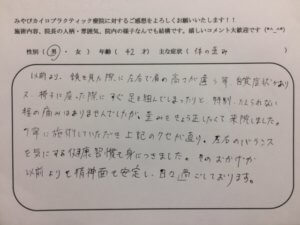 みやびカイロプラクティック療院に対するご感想をよろしくお願いいたします!!
施術内容、院長の人柄・雰囲気、院内の様子なんでも結構です。嬉しいコメント大歓迎です(*^_^*)
性別(男・女) 年齢(42才) 主な症状(体の歪み)
以前より、鏡を見た際に左右で肩の高さが違う等、自覚症状があり
又、椅子に座った際にすぐ足を組んでしまったりと 特別、たえられない
程の痛みはありませんでしたが、歪みをきょう正したくて来院しました。
丁寧に施術していただき 上記のクセが直り。左右のバランス
を気にする健康習慣も身につきました。そのおかげか
以前よりも精神面も安定し、日々過ごしております。